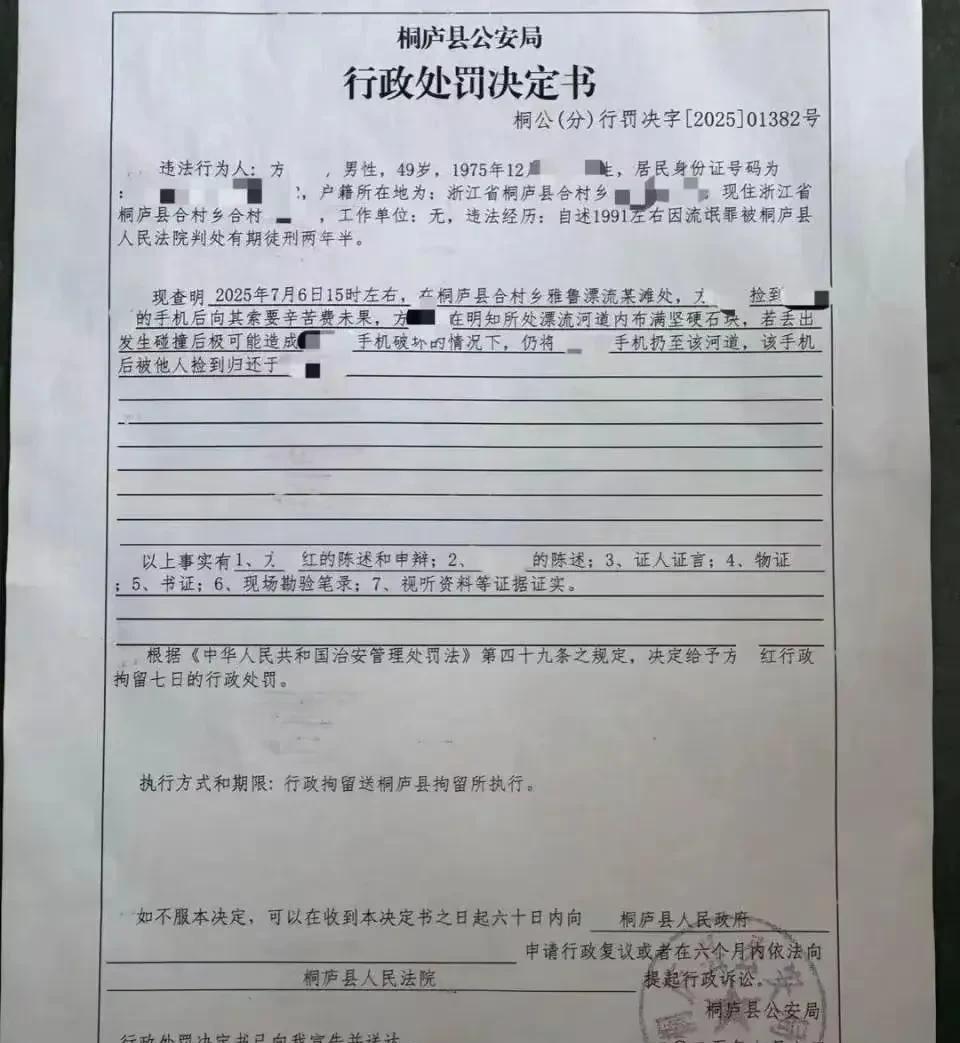 桐庐县公安局
行政处罚决定书
桐公(分)行罚决字[2025]01382号
违法行为人：方 ，男性，49岁，1975年12 生，居民身份证号码为
： ，户籍所在地为：浙江省桐庐县合村乡 ，现住浙江省
桐庐县合村乡合村 ，工作单位：无，违法经历：自述1991左右因流氓罪被桐庐县
人民法院判处有期徒刑两年半。
现查明 2025年7月6日15时左右，在桐庐县合村乡雅鲁漂流某滩处， 捡到
的手机后向其索要辛苦费未果，方 在明知所处漂流河道内布满坚硬石块，若丢出
发生碰撞后极可能造成 手机破坏的情况下，仍将 手机扔至该河道，该手机
后被他人捡到归还于
以上事实有1、 红的陈述和申辩；2、 的陈述；3、证人证言；4、物证
；5、书证；6、现场勘验笔录；7、视听资料等证据证实。
根据《中华人民共和国治安管理处罚法》第四十九条之规定，决定给予方 红行政
拘留七日的行政处罚。
执行方式和期限：行政拘留送桐庐县拘留所执行。
如不服本决定，可以在收到本决定书之日起六十日内向 桐庐县人民政府
申请行政复议或者在六个月内依法向
桐庐县人民法院 提起行政诉讼。
桐庐县公安局
行政处罚决定书已向我宣告并送达